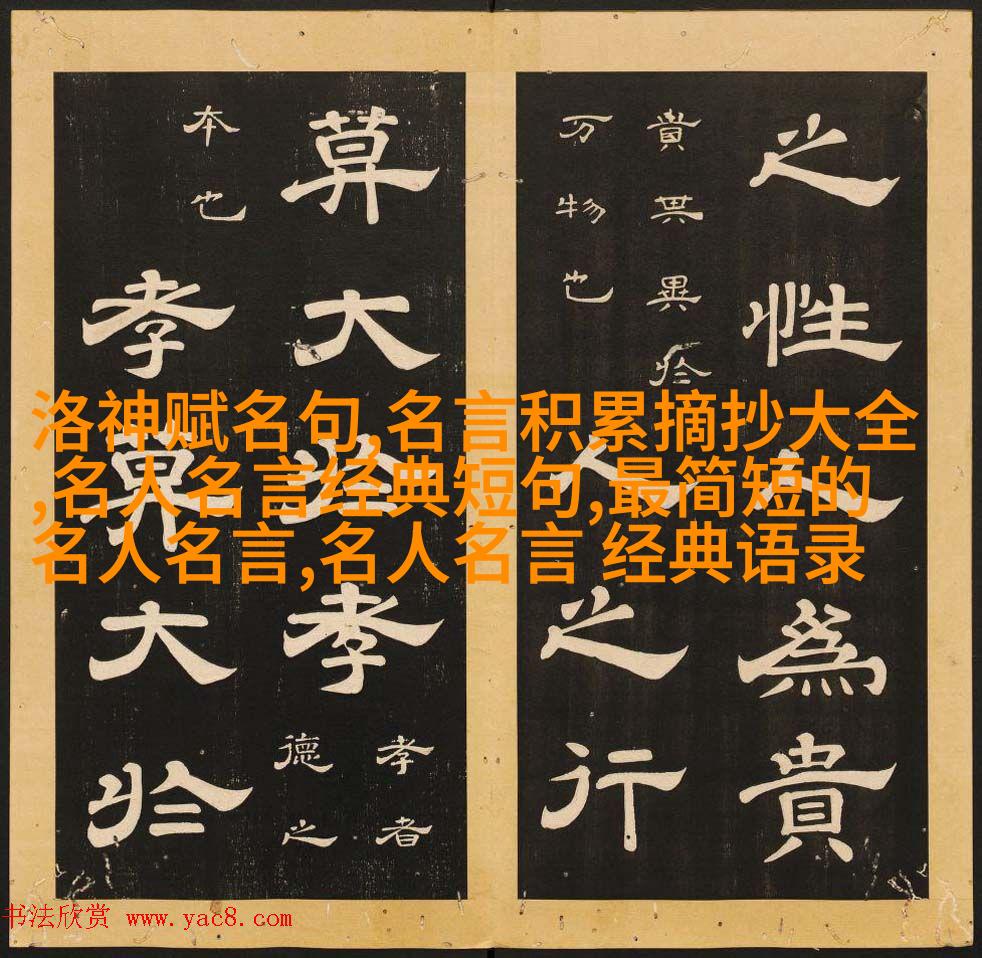 之性人為貴
貴其異於
万物也
人之行
莫大於孝
孝者
德之
本也
孝莫大於
洛神赋名句,名言积累摘抄大全
,名人名言经典短句,最简短的
名人名言,名人名言 经典语录
书法欣赏 www.yac8.com